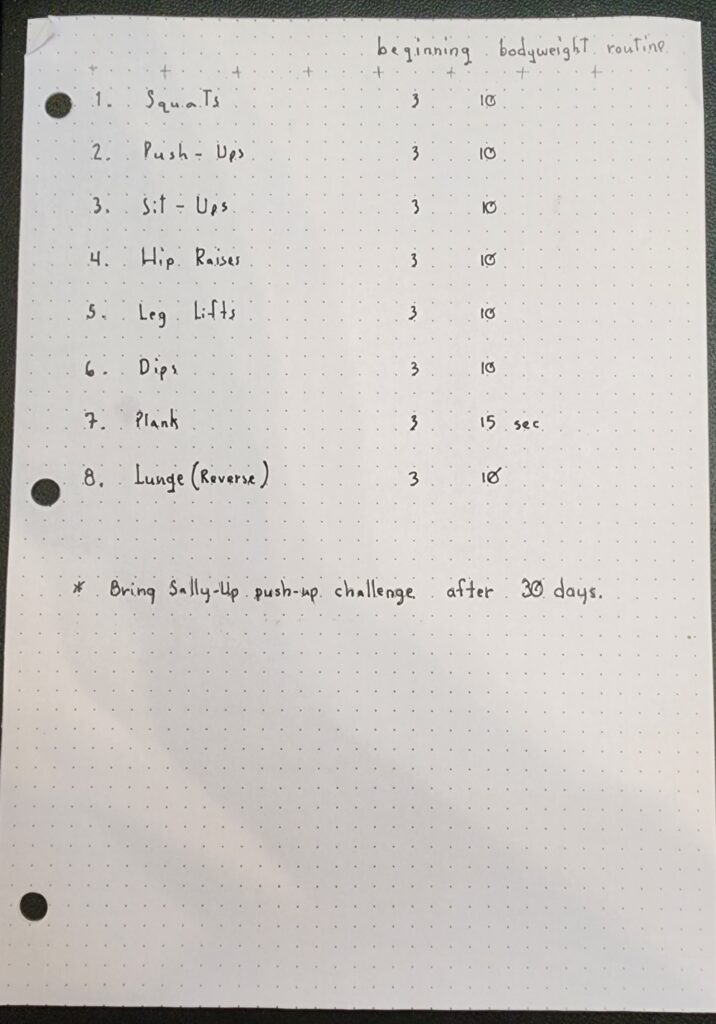 beginning bodyweight routine
1. Squats 3 10
2. Push-Ups 3 10
3. Sit-Ups 3 10
4. Hip Raises 3 10
5. Leg Lifts 3 10
6. Dips 3 10
7. Plank 3 15 sec
8. Lunge (Reverse) 3 10
* Bring Sally-Up push-up challenge after 30 days.